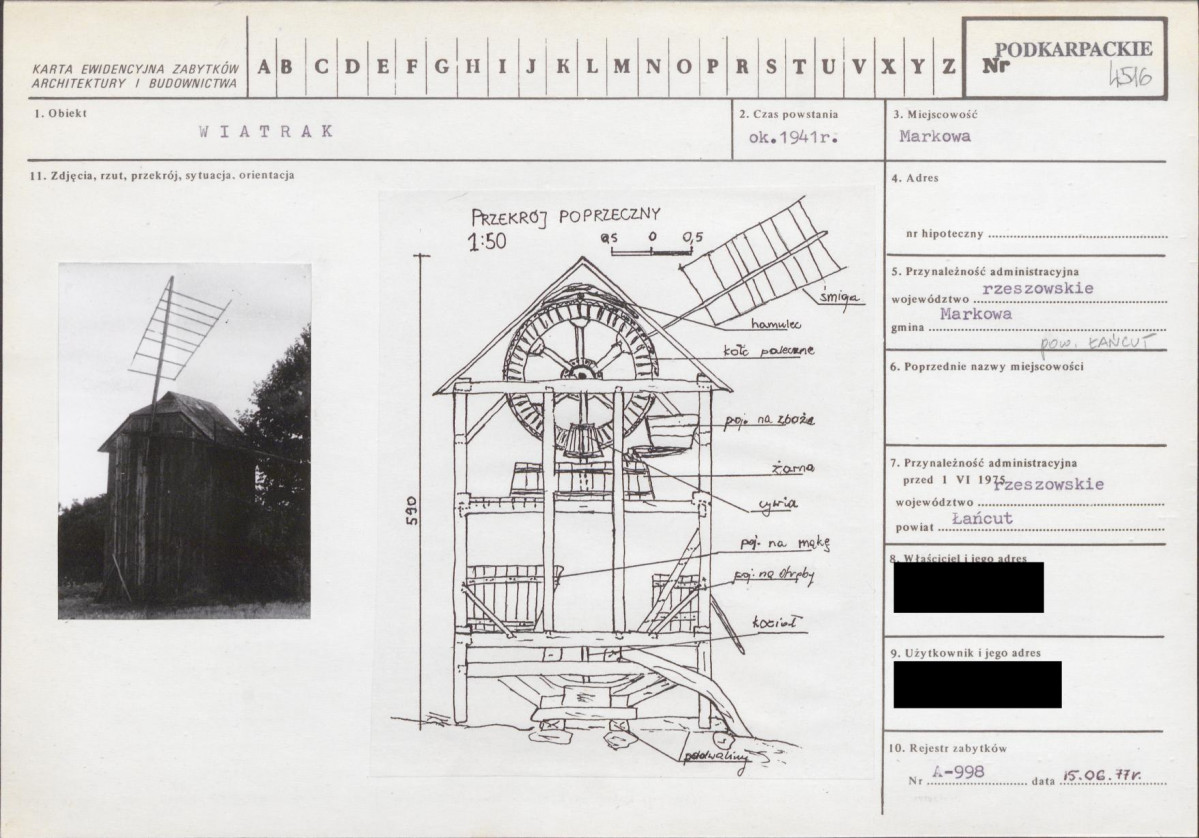 KARTA EWIDENCYJNA ZABYTKÓW
ARCHITEKTURY I BUDOWNICTWA
A B C D E F G H I J K L M N O P R S T U V X Y Z
PODKARPACKIE
Nr
4516
1. Obiekt
WIATRAK
2. Czas powstania
ok.1941r.
3. Miejscowość
Markowa
11. Zdjęcia, rzut, przekrój, sytuacja, orientacja
4. Adres
nr hipoteczny
5. Przynależność administracyjna
województwo rzeszowskie
gmina Markowa
pow. ŁAŃCUT
6. Poprzednie nazwy miejscowości
7. Przynależność administracyjna
przed 1 VI 1975
województwo rzeszowskie
powiat Łańcut
8. Właściciel i jego adres
9. Użytkownik i jego adres
10. Rejestr zabytków
Nr A-998 data 15.06.77r.
PRZEKRÓJ POPRZECZNY
1:50
0,5 0 0,5
śmiga
hamulec
koło paleczne
poj. na zboże
żarna
cywia
poj. na mąkę
poj. na otręby
kozioł
podwaliny
590